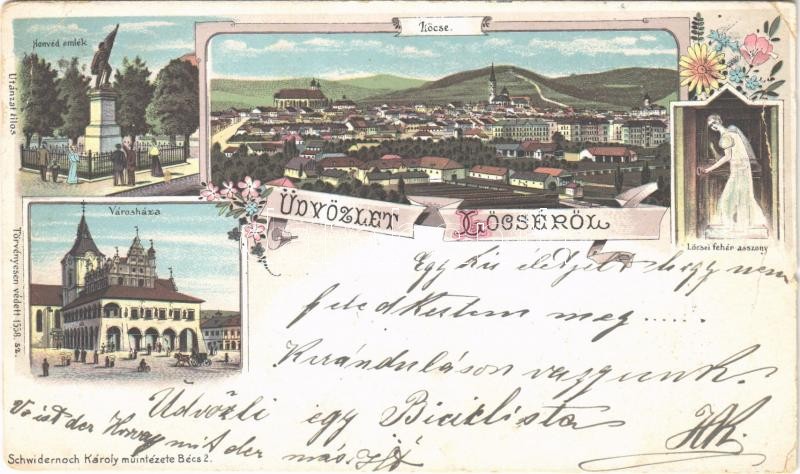 Lőcse.
Honvéd emlék
Utánzat tilos
ÜDVÖZLET LŐCSÉRŐL
Lőcsei fehér asszony
Városháza
Törvényesen védett 1558. sz.
Egy kis életjel hogy nem
feledkeztem meg......
Kiránduláson vagyunk.
Üdvözli egy Biciklista
HK.
Wo ist der
mit der
más.
Schwidernoch Károly műintézete Bécs 2.